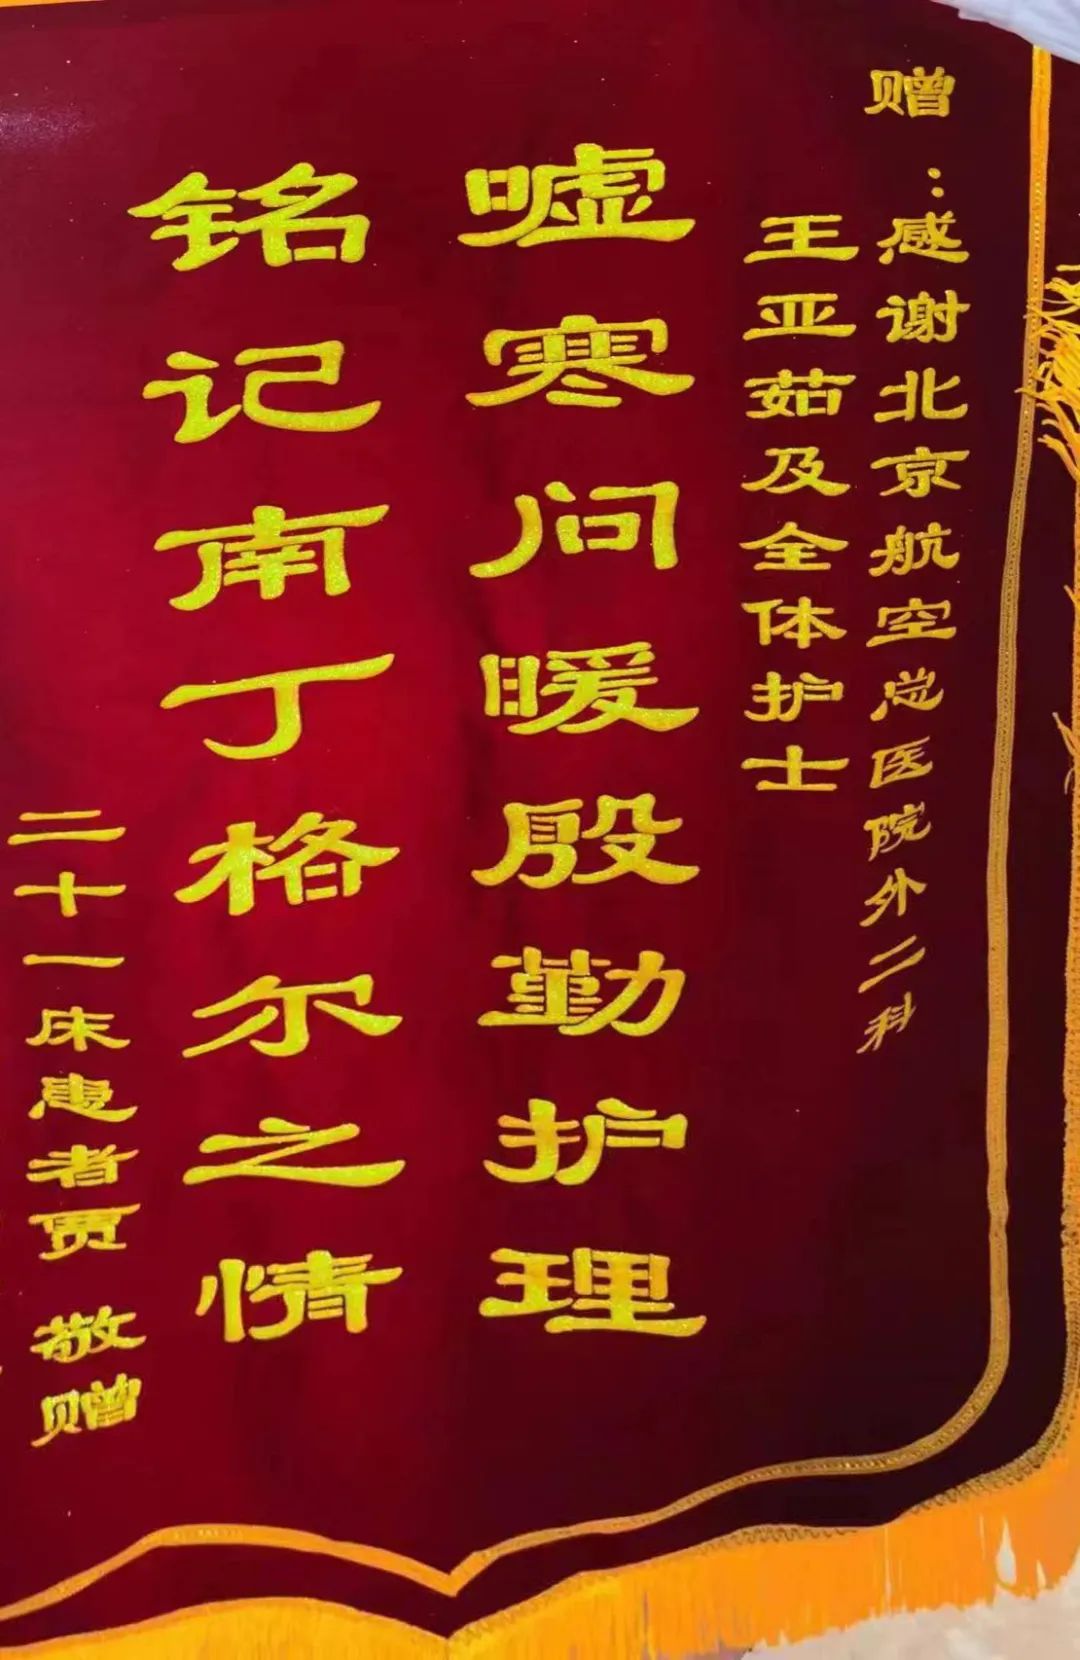 赠：感谢北京航空总医院外二科
王亚茹及全体护士
嘘寒问暖殷勤护理
铭记南丁格尔之情
二十一床患者贾 敬赠